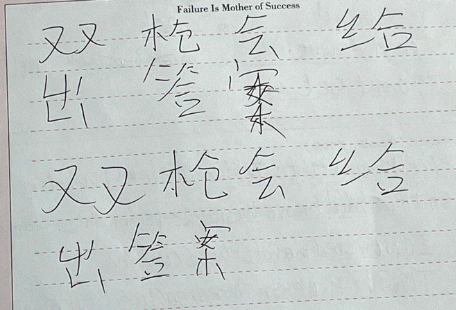 Failure Is Mother of Success
双枪会给
出答案
双枪会给
出答案